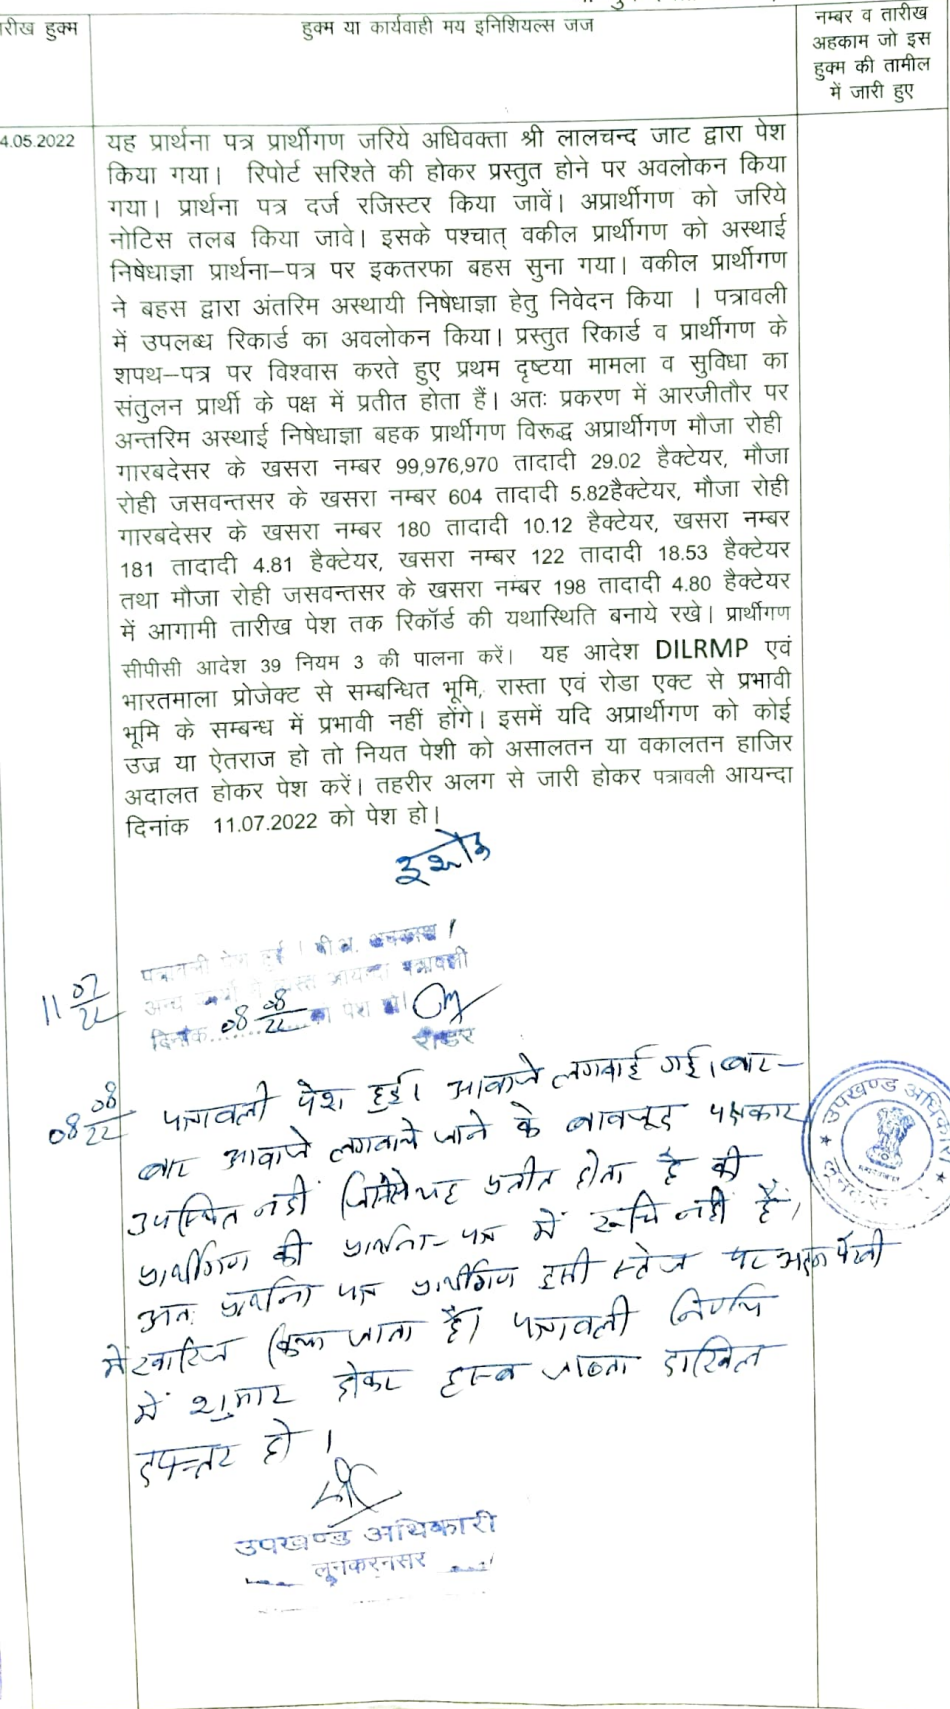 रीख हुक्म
हुक्म या कार्यवाही मय इनिशियल्स जज
नम्बर व तारीख
अहकाम जो इस
हुक्म की तामील
में जारी हुए
4.05.2022
यह प्रार्थना पत्र प्रार्थीगण जरिये अधिवक्ता श्री लालचन्द जाट द्वारा पेश
किया गया। रिपोर्ट सरिश्ते की होकर प्रस्तुत होने पर अवलोकन किया
गया। प्रार्थना पत्र दर्ज रजिस्टर किया जावें। अप्रार्थीगण को जरिये
नोटिस तलब किया जावे। इसके पश्चात् वकील प्रार्थीगण को अस्थाई
निषेधाज्ञा प्रार्थना–पत्र पर इकतरफा बहस सुना गया। वकील प्रार्थीगण
ने बहस द्वारा अंतरिम अस्थायी निषेधाज्ञा हेतु निवेदन किया । पत्रावली
में उपलब्ध रिकार्ड का अवलोकन किया। प्रस्तुत रिकार्ड व प्रार्थीगण के
शपथ–पत्र पर विश्वास करते हुए प्रथम दृष्टया मामला व सुविधा का
संतुलन प्रार्थी के पक्ष में प्रतीत होता हैं। अतः प्रकरण में आरजीतौर पर
अन्तरिम अस्थाई निषेधाज्ञा बहक प्रार्थीगण विरूद्ध अप्रार्थीगण मौजा रोही
गारबदेसर के खसरा नम्बर 99,976,970 तादादी 29.02 हैक्टेयर, मौजा
रोही जसवन्तसर के खसरा नम्बर 604 तादादी 5.82हैक्टेयर, मौजा रोही
गारबदेसर के खसरा नम्बर 180 तादादी 10.12 हैक्टेयर, खसरा नम्बर
181 तादादी 4.81 हैक्टेयर, खसरा नम्बर 122 तादादी 18.53 हैक्टेयर
तथा मौजा रोही जसवन्तसर के खसरा नम्बर 198 तादादी 4.80 हैक्टेयर
में आगामी तारीख पेश तक रिकॉर्ड की यथास्थिति बनाये रखे। प्रार्थीगण
सीपीसी आदेश 39 नियम 3 की पालना करें। यह आदेश DILRMP एवं
भारतमाला प्रोजेक्ट से सम्बन्धित भूमि, रास्ता एवं रोडा एक्ट से प्रभावी
भूमि के सम्बन्ध में प्रभावी नहीं होंगे। इसमें यदि अप्रार्थीगण को कोई
उज्र या ऐतराज हो तो नियत पेशी को असालतन या वकालतन हाजिर
अदालत होकर पेश करें। तहरीर अलग से जारी होकर पत्रावली आयन्दा
दिनांक 11.07.2022 को पेश हो।
11 07/22
पत्रावली पेश हुई। पी.अ. अवकाश।
आयन्दा पत्रावली
दिनांक 08 08/22 को पेश हो।
रीडर
08 08/22 पत्रावली पेश हुई। आवाजे लगवाई गई। बार–
बार आवाजे लगवाये जाने के बावजूद पक्षकार
उपस्थित नहीं जिससे यह प्रतीत होता है की
प्रार्थीगण की प्रार्थना–पत्र में रूचि नहीं है।
अतः प्रार्थना पत्र प्रार्थीगण इसी स्टेज पर अदम पैरवी
में खारिज किया जाता है। पत्रावली निर्णय
में शुमार होकर हस्ब जाब्ता दाखिल
दफ्तर हो।
उपखण्ड अधिकारी
उपखण्ड अधिकारी
लूनकरनसर